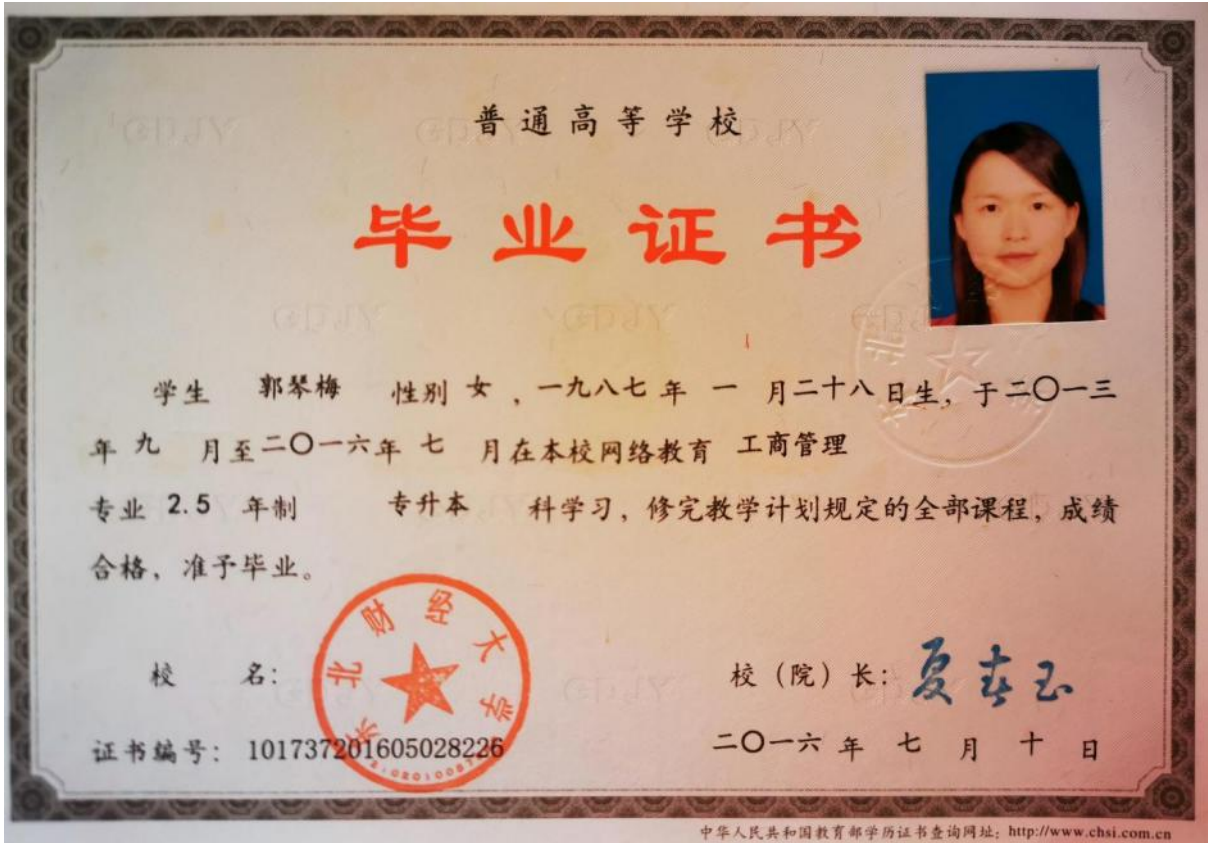 普通高等学校
毕业证书
学生 郭琴梅 性别 女 ，一九八七 年 一 月二十八 日生，于二〇一三
年 九 月至二〇一六年 七 月在本校网络教育 工商管理
专业 2.5 年制 专升本 科学习，修完教学计划规定的全部课程，成绩
合格，准予毕业。
东北财经大学
校 名： 校（院）长：夏春玉
证书编号： 101737201605028226 二〇一六 年 七 月 十 日
中华人民共和国教育部学历证书查询网址：http://www.chsi.com.cn